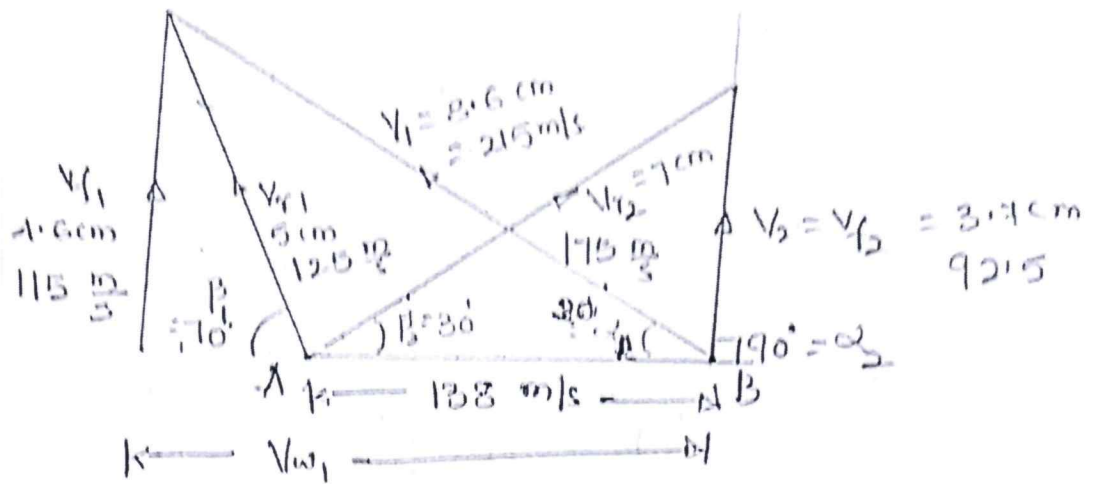 V₁ = 8.6 cm
= 215 m/s
Vf₁
4.6cm
115 m/s
Vr1
5 cm
125 m/s
β₁
= 70°
Vr₂ = 7 cm
175 m/s
V₂ = Vf₂ = 3.7 cm
92.5
β₂=30°
90° = α₂
A
138 m/s
B
Vw₁